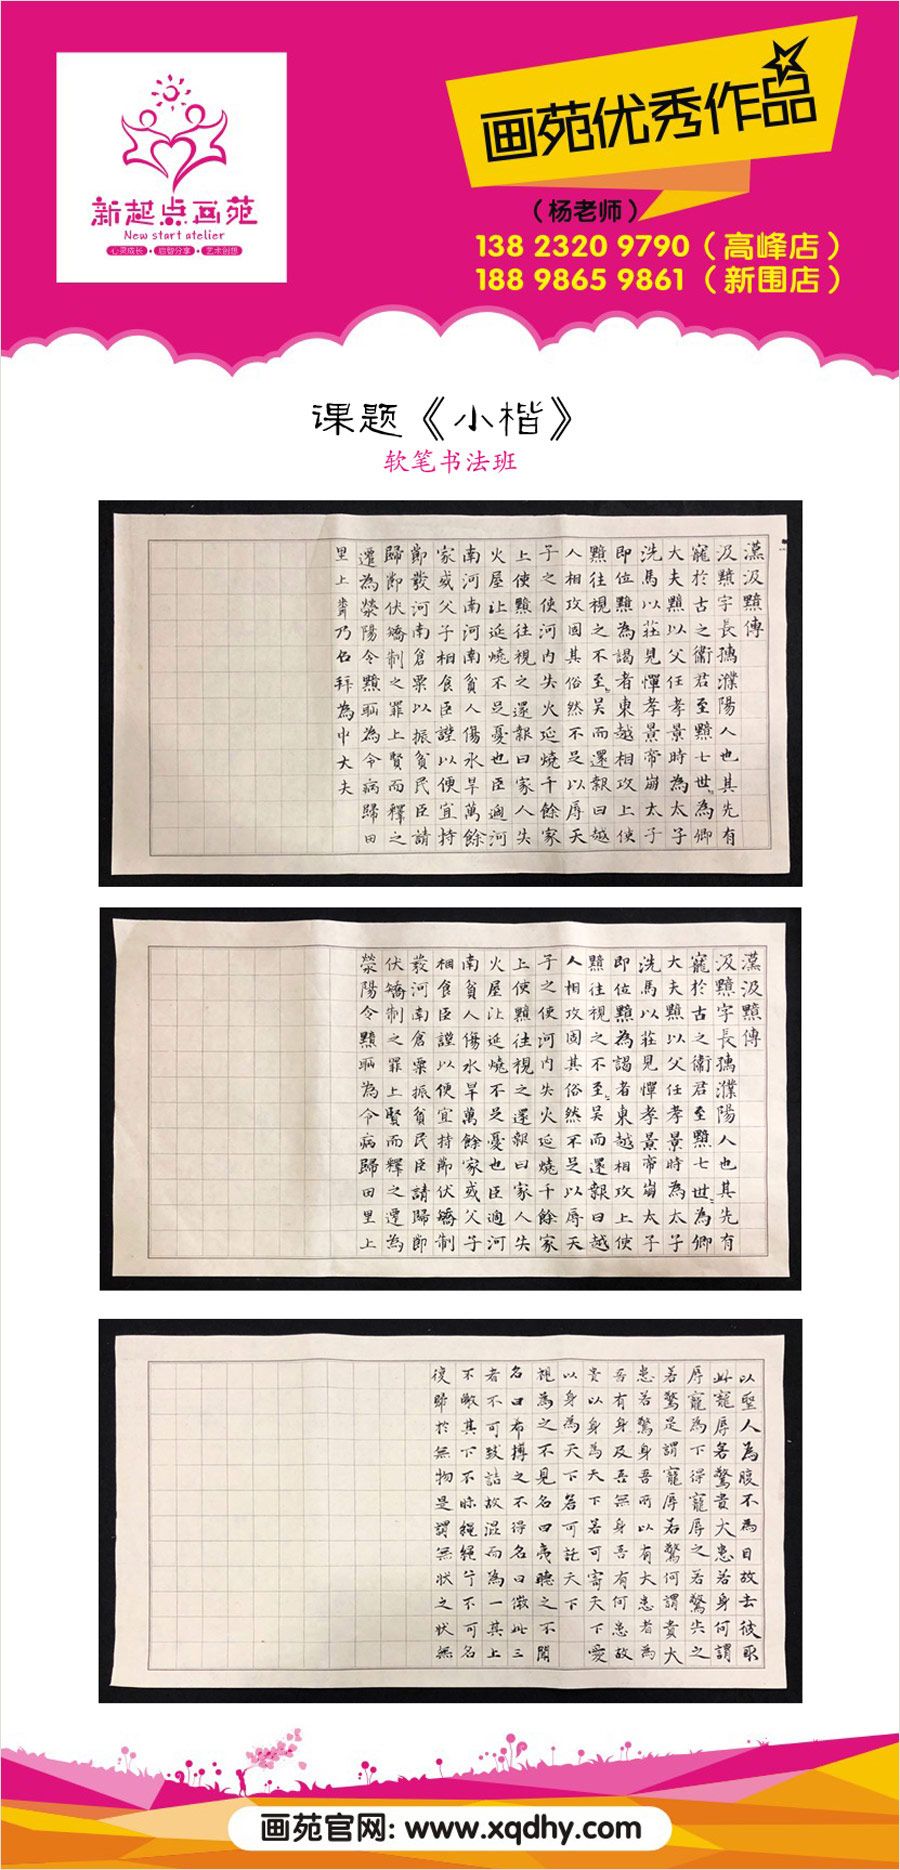 新起点画苑
New start atelier
心灵成长·启智分享·艺术创想
画苑优秀作品
（杨老师）
138 2320 9790（高峰店）
188 9865 9861（新围店）
课题《小楷》
软笔书法班
漢汲黯傳
汲黯字長孺濮陽人也其先有
寵於古之衛君至黯七世為卿
大夫黯以父任孝景時為太子
洗馬以莊見憚孝景帝崩太子
即位黯為謁者東越相攻上使
黯往視之不至吳而還報曰越
人相攻固其俗然不足以辱天
子之使河內失火延燒千餘家
上使黯往視之還報曰家人失
火屋比延燒不足憂也臣過河
南河南河南貧人傷水旱萬餘
家或父子相食臣謹以便宜持
節發河南倉粟以振貧民臣請
歸節伏矯制之罪上賢而釋之
遷為滎陽令黯恥為令病歸田
里上乃召拜為中大夫
漢汲黯傳
汲黯字長孺濮陽人也其先有
寵於古之衛君至黯七世為卿
大夫黯以父任孝景時為太子
洗馬以莊見憚孝景帝崩太子
即位黯為謁者東越相攻上使
黯往視之不至吳而還報曰越
人相攻固其俗然不足以辱天
子之使河內失火延燒千餘家
上使黯往視之還報曰家人失
火屋比延燒不足憂也臣過河
南貧人傷水旱萬餘家或父子
相食臣謹以便宜持節伏矯制
發河南倉粟振貧民臣請歸節
伏矯制之罪上賢而釋之遷為
滎陽令黯恥為令病歸田里上
以聖人為腹不為目故去彼取
此寵辱若驚貴大患若身何謂
辱寵為下得寵辱之若驚失之
若驚是謂寵辱若驚何謂貴大
患若驚身吾所以有大患者為
吾有身及吾無身吾有何患故
貴以身為天下若可寄天下愛
以身為天下若可託天下
視為之不見名曰夷聽之不聞
名曰希搏之不得名曰微此三
者不可致詰故混而為一其上
不皦其下不昧繩繩兮不可名
復歸於無物是謂無狀之狀無
画苑官网: www.xqdhy.com